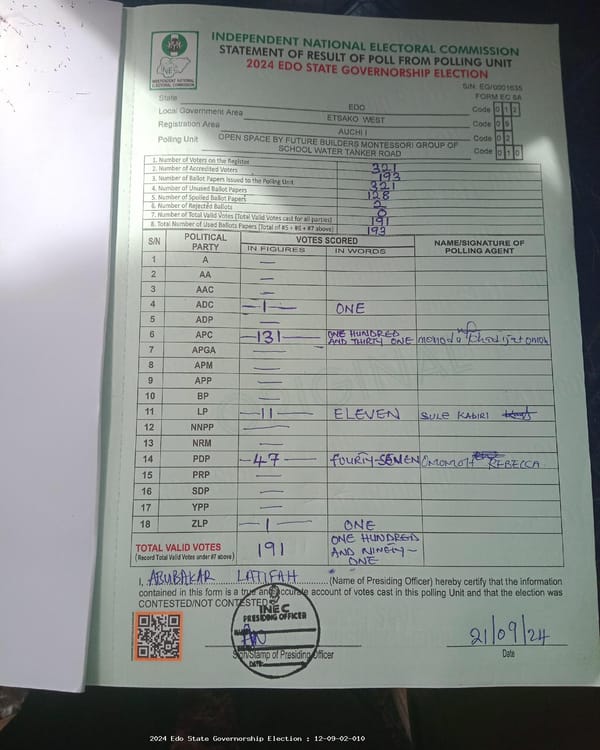 INDEPENDENT NATIONAL ELECTORAL COMMISSION
STATEMENT OF RESULT OF POLL FROM POLLING UNIT
2024 EDO STATE GOVERNORSHIP ELECTION
INEC
INDEPENDENT NATIONAL ELECTORAL COMMISSION
S/N: EG/0001635
FORM EC 8A
State EDO Code 0 1 2
Local Government Area ETSAKO WEST Code 0 9
Registration Area AUCHI I Code 0 2
Polling Unit OPEN SPACE BY FUTURE BUILDERS MONTESSORI GROUP OF SCHOOL WATER TANKER ROAD Code 0 1 0
1. Number of Voters on the Register 321
2. Number of Accredited Voters 193
3. Number of Ballot Papers Issued to the Polling Unit 321
4. Number of Unused Ballot Papers 128
5. Number of Spoiled Ballot Papers 2
6. Number of Rejected Ballots 0
7. Number of Total Valid Votes (Total Valid Votes cast for all parties) 191
8. Total Number of Used Ballots Papers (Total of #5 + #6 + #7 above) 193
S/N POLITICAL PARTY VOTES SCORED NAME/SIGNATURE OF POLLING AGENT
IN FIGURES IN WORDS
1 A —
2 AA —
3 AAC —
4 ADC —1— ONE
5 ADP —
6 APC —131— ONE HUNDRED AND THIRTY ONE
7 APGA —
8 APM —
9 APP —
10 BP —
11 LP —11— ELEVEN SULE KABIRI
12 NNPP —
13 NRM —
14 PDP —47— FOURTY-SEVEN REBECCA
15 PRP —
16 SDP —
17 YPP —
18 ZLP —1— ONE
TOTAL VALID VOTES 191 ONE HUNDRED AND NINETY-ONE
(Record Total Valid Votes under #7 above)
ORIGINAL
I, ABUBAKAR LATIFAH (Name of Presiding Officer) hereby certify that the information
contained in this form is a true and accurate account of votes cast in this polling Unit and that the election was
CONTESTED/NOT CONTESTED
INEC
PRESIDING OFFICER
DATE:
Sign/Stamp of Presiding Officer
21/09/24
Date
2024 Edo State Governorship Election : 12-09-02-010